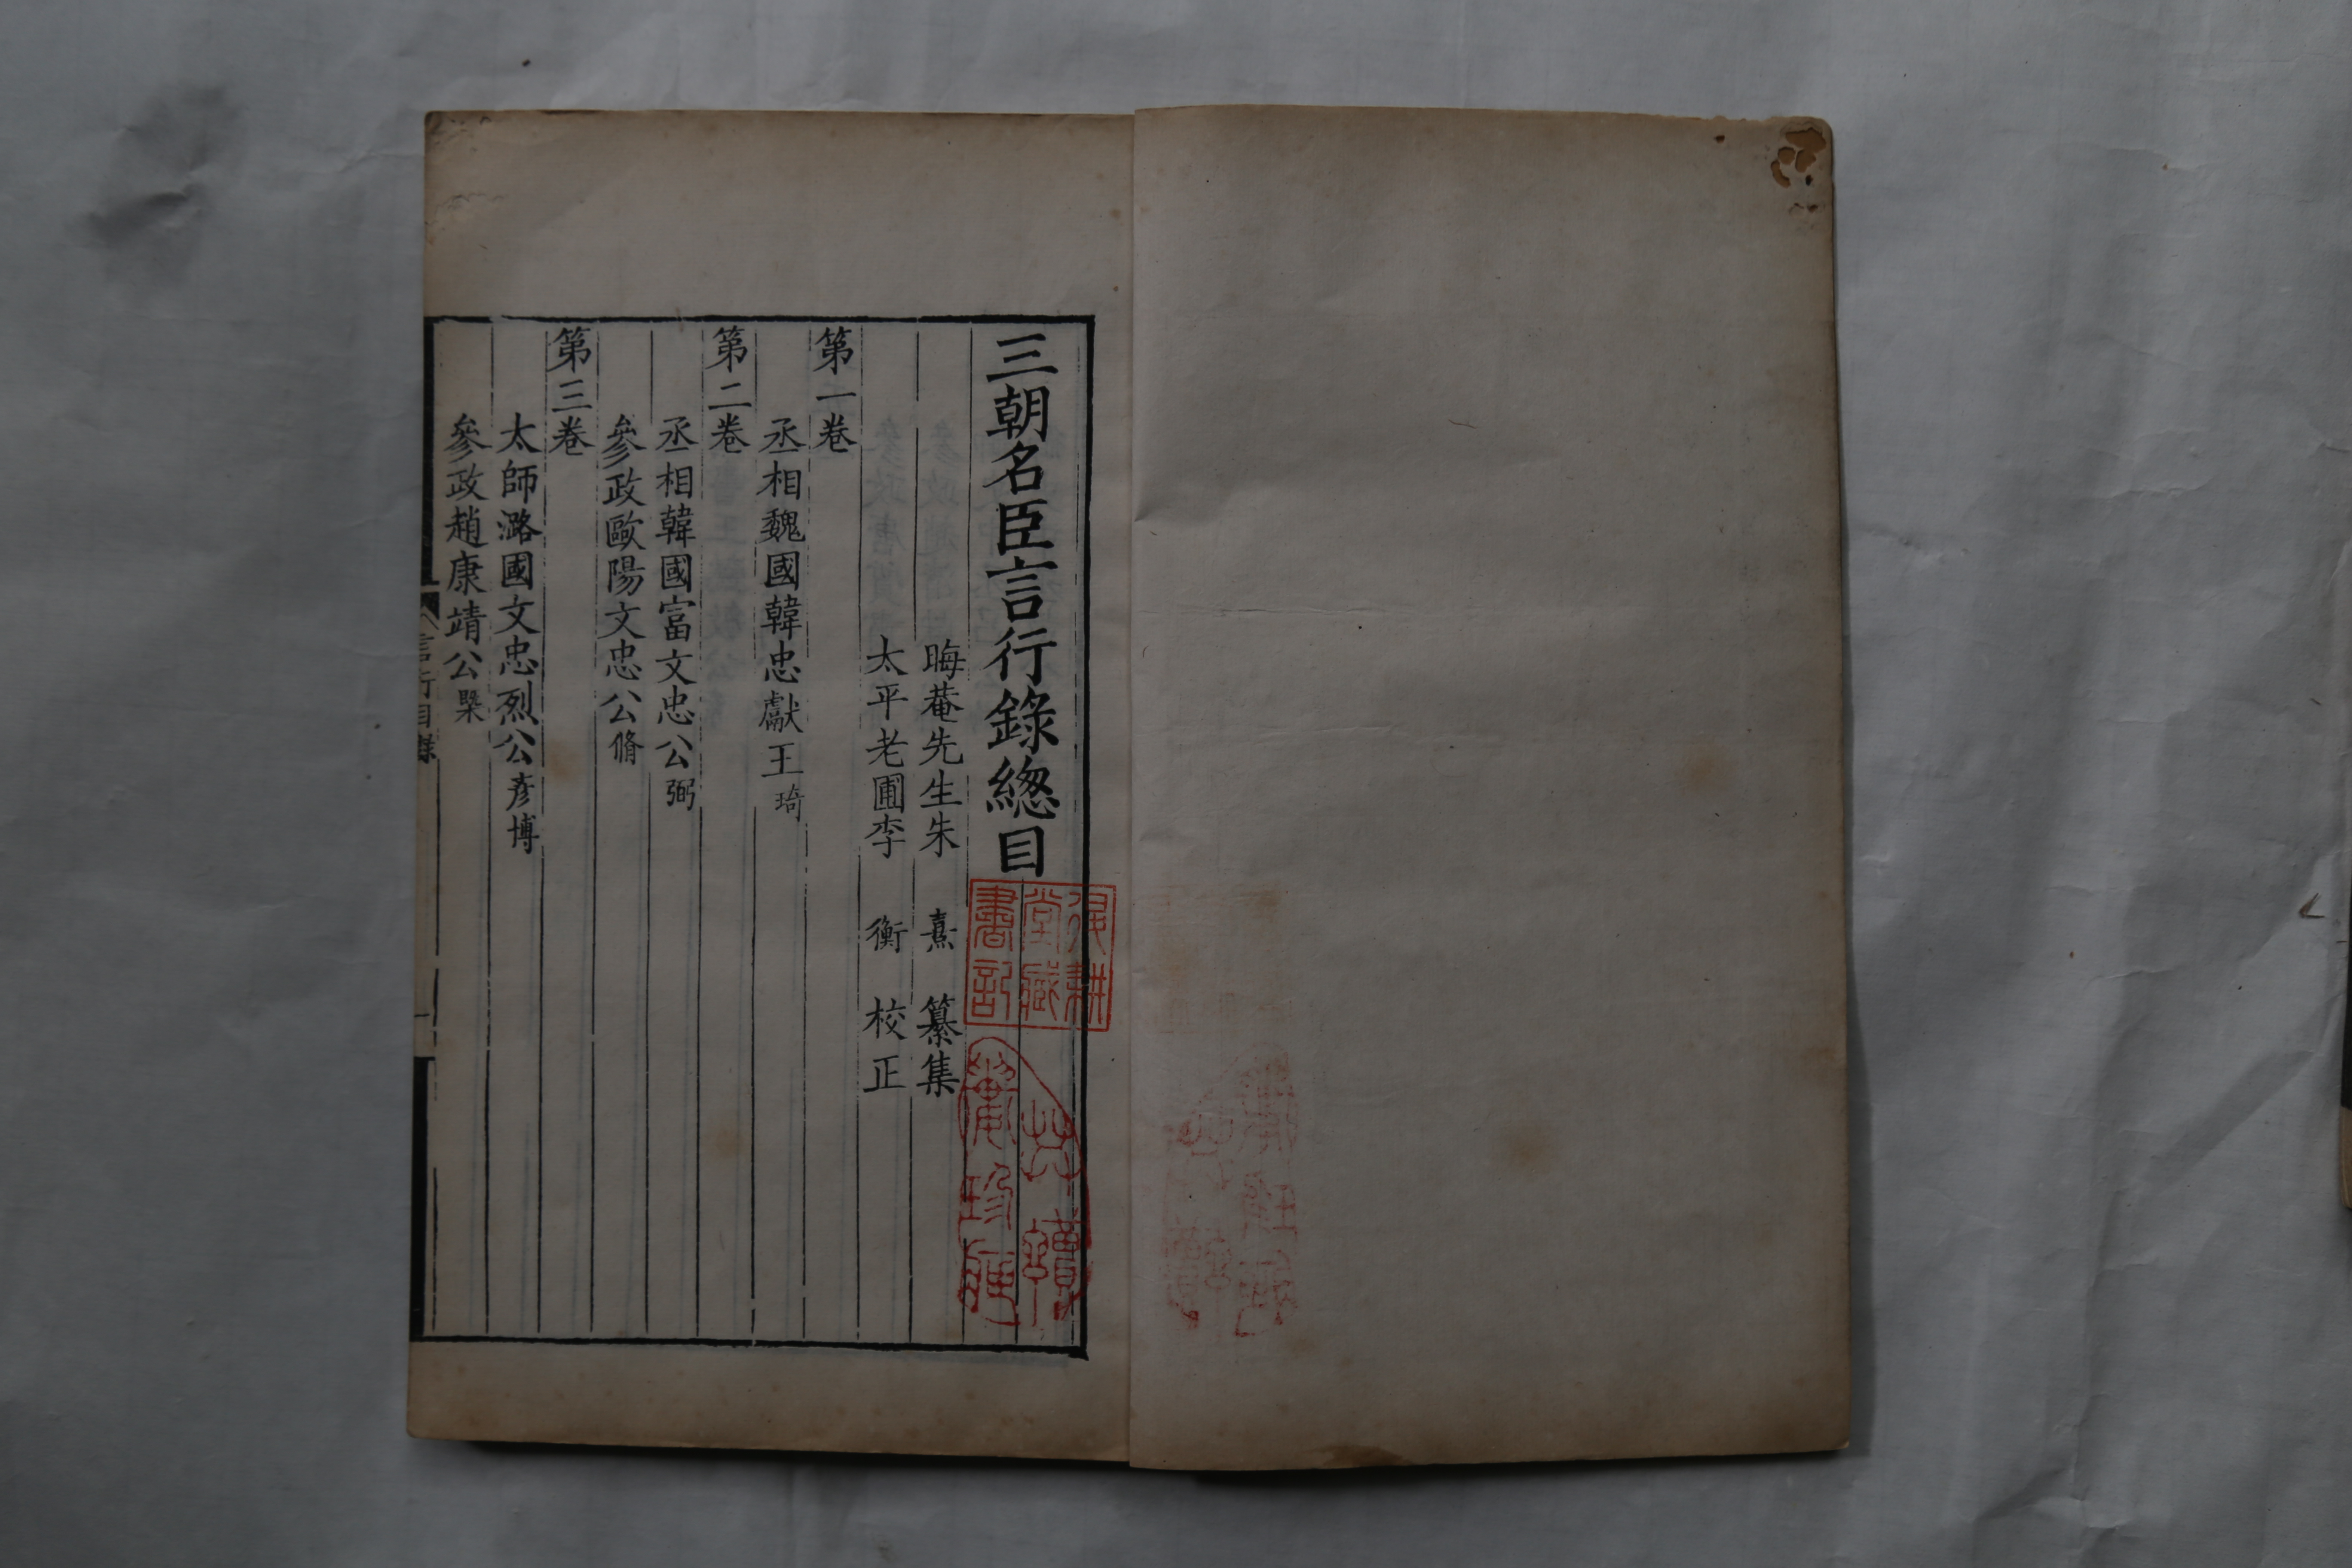 三朝名臣言行錄緫目
晦菴先生朱 熹 纂集
太平老圃李 衡 校正
第一卷
丞相魏國韓忠獻王琦
第二卷
丞相韓國富文忠公弼
參政歐陽文忠公脩
第三卷
太師潞國文忠烈公彥博
參政趙康靖公槩
言行目錄
一
復耕
堂藏
書記
共讀